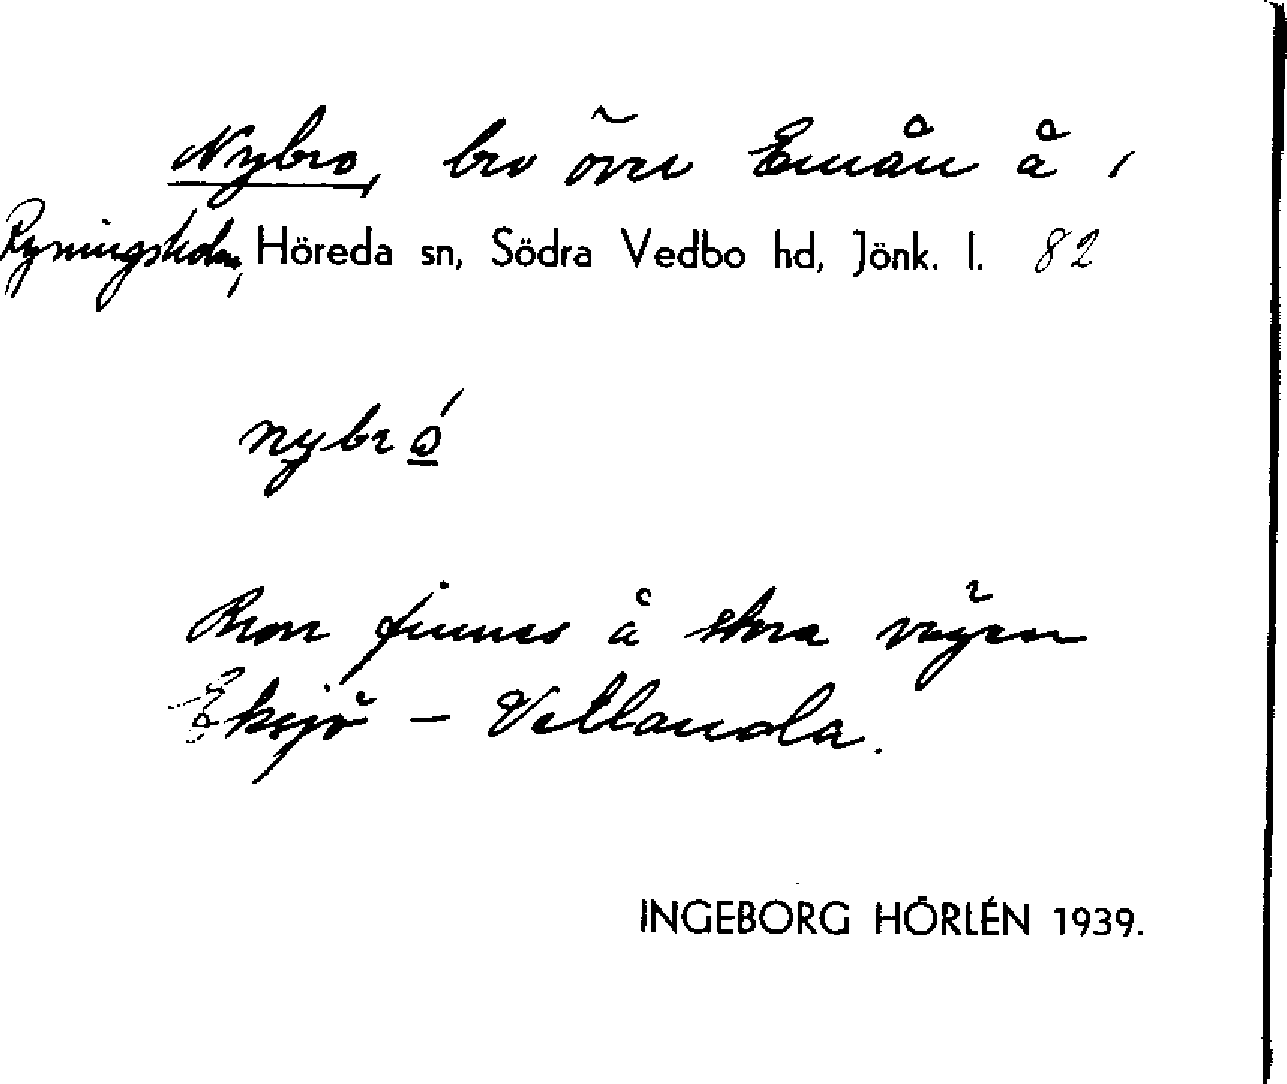 Nybro, bro över Emån å
Ryningsholm, Höreda sn, Södra Vedbo hd, Jönk. l. 82
nybró
Bron finnes å stora vägen
Eksjö – Vetlanda.
INGEBORG HÖRLÉN 1939.